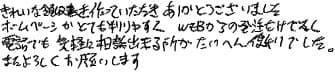 きれいな領収書を作っていただき ありがとうございました
ホームページがとても判りやすく WEBからの発注だけでなく
電話でも 気軽に相談出来る所が たいへん便利でした。
またよろしくお願いします